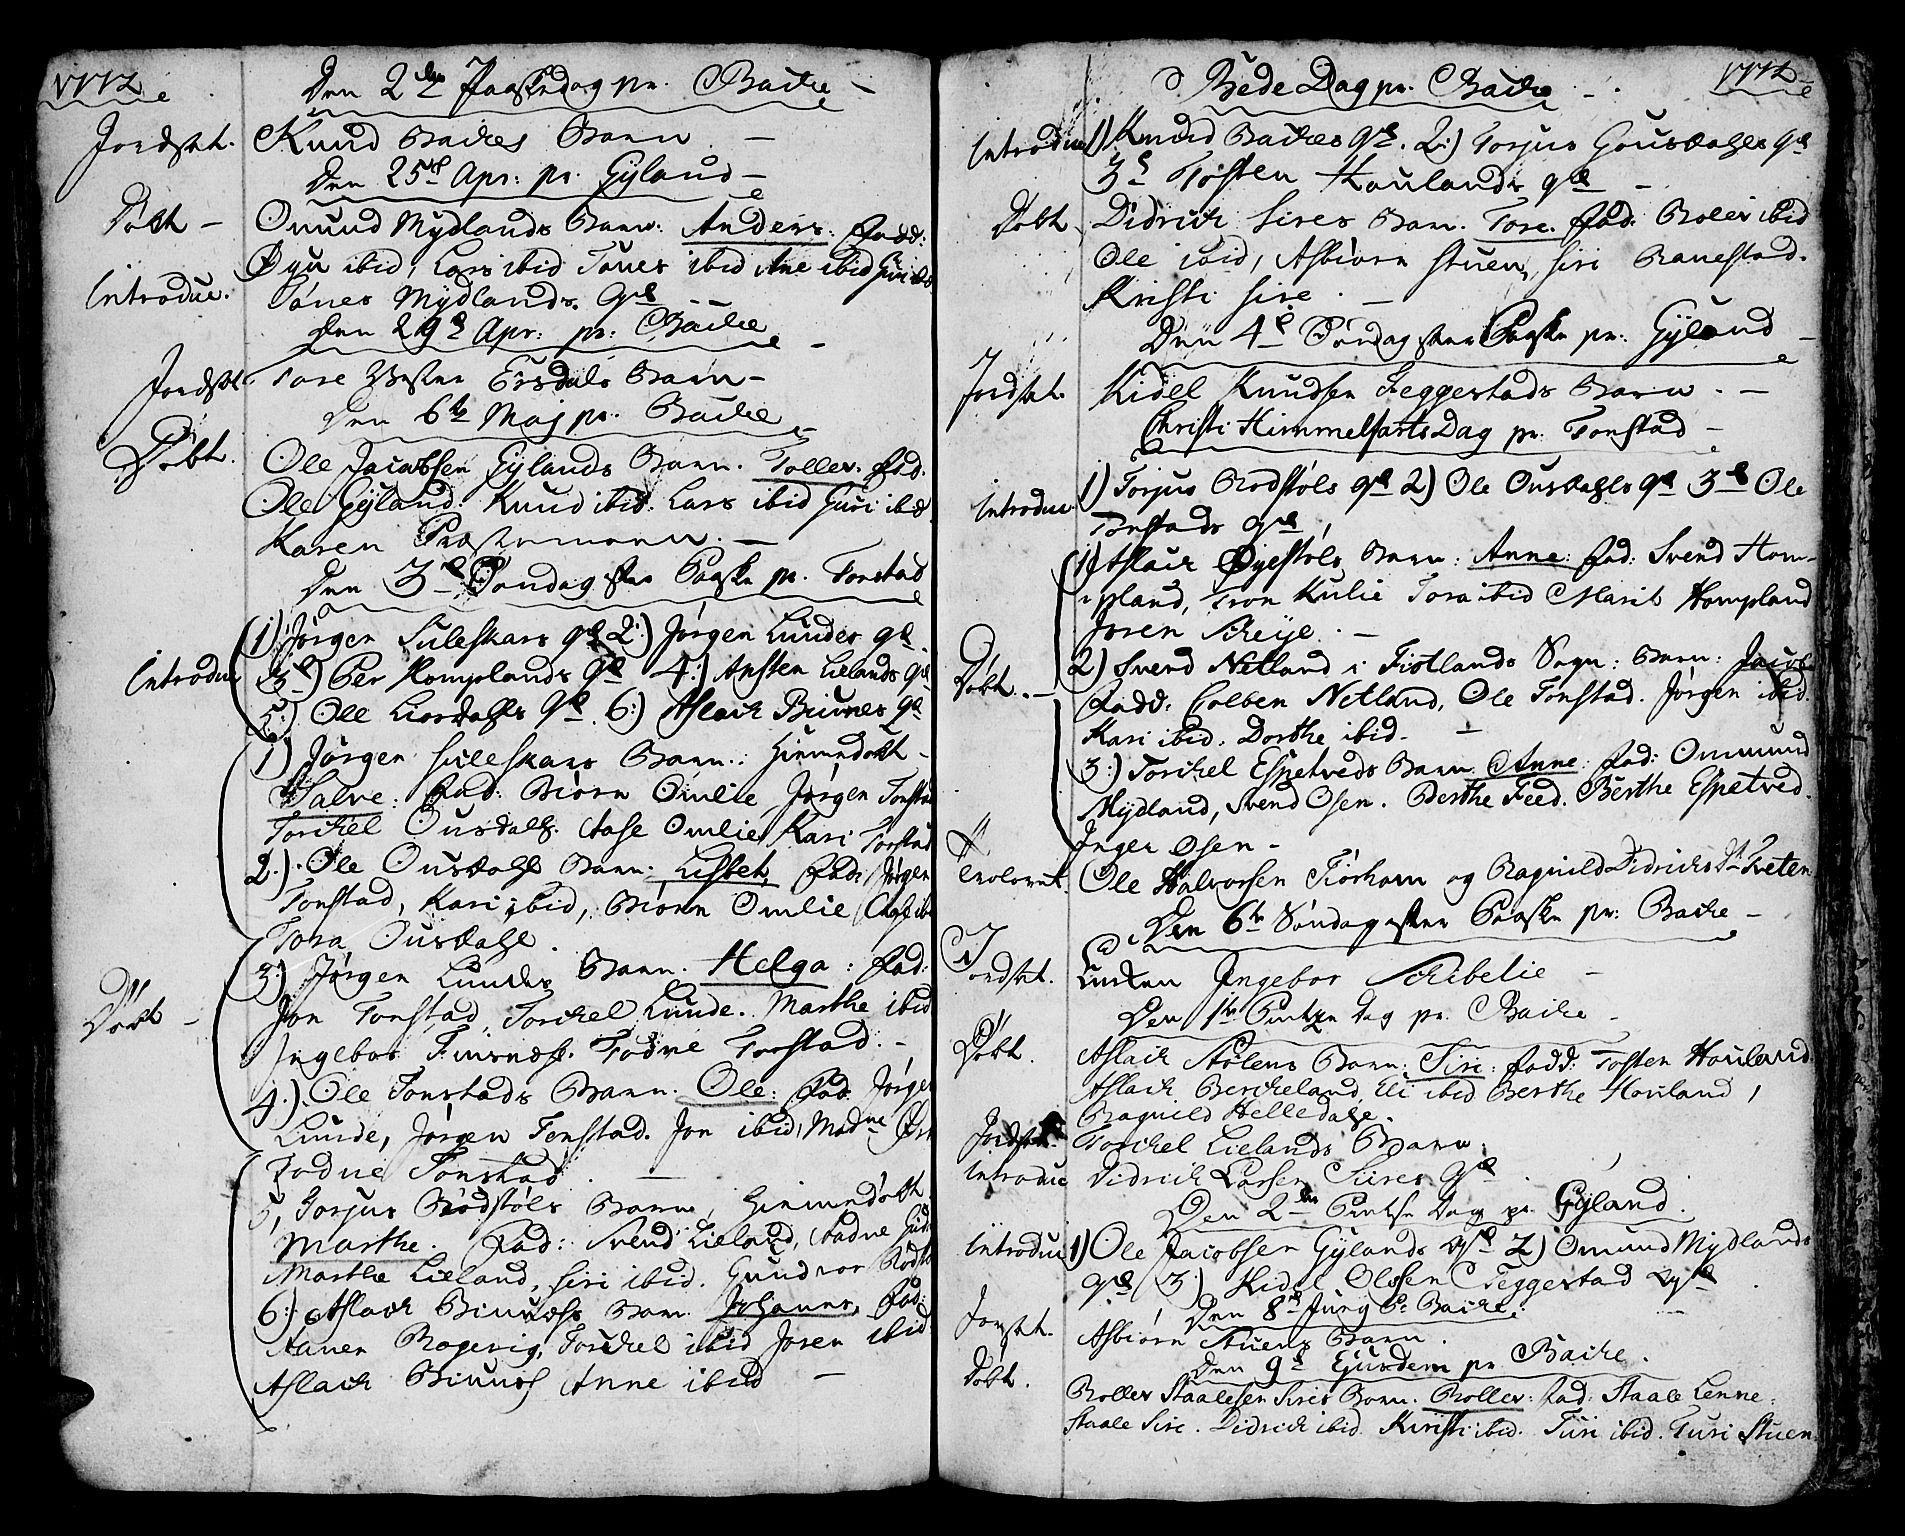 1772
Den 2den Paaskedag pr. Backe
Jordfæst. Knud Backes Barn
Den 25de Apr: pr. Gyland
Døbt Omund Mydlands Barn: Anders: Fadd:
Ogn ibid, Lars ibid Tønes ibid Ane ibid Siri ibid
Introduc. Tónes Mydlands. Qde
Den 29de Apr: pr: Backe
Jordfæst. Tore Ersdals Barn
Den 6te Maj pr. Backe
Døbt. Ole Jacobsen Gylands Barn. Tollev. Fad.
Ole Gyland. Knud ibid. Lars ibid Guri ibid.
Karen
Den 3de Søndag efter Paaske pr. Tonstad
1) Jørgen Suleskars qde 2:) Jørgen Lundes qde
Introduc. 3de) Per Homplands Qde 4:) Austen Lielands Qde
5:) Ole Liordahls Qde. 6:) Aslack Biunes Qde
1) Jørgen Suleskars Barn: Hiemedøbt
Salve: Fad: Biørn Omlie Jørgen Tonstad
Torckel Ousdahl. Aase Omlie Kari Tonstad
2.) Ole Ousdahl Barn: Lisbet, Fad: Jørgen
Tonstad, Kari ibid, Biørn Omlie
Tora Ousdahl.
3:) Jørgen Lundes Barn. Helga: Fad:
Døbt Jon Tonstad, Torckel Lunde. Marthe ibid
Ingebor Finsnæs. Todne Tonstad.
4:) Ole Tonstads Barn. Ole: Fad. Jørgen
Lunde, Jørgen Tonstad. Jon ibid, Madne
Todne Tonstad
5, Torjus Rødstøls Barn, Hiemedøbt
Marthe. Fad: Svend Lieland,
Marthe Lieland, Siri ibid. Gundvor
6:) Aslack Biunæs Barn. Johannes, Fad:
Aanen Rogevig, Torckel ibid Joren ibid
Aslack Biunes Anne ibid
1772
Bede Dag pr. Backe
Introduc. 1) Knud Backes Qde. 2:) Torjus Gousdahls Qde
3de Tosten Houlands qde
Døbt Didrich Sires Barn. Tore. Fad: Roller ibid
Ole ibid, Asbiørn Stuen, Siri Ranestad.
Kristi Sire.
Den 4de Søndag efter Paaske pr. Gyland
Jordfæst. Kidel Knudsen Feggestads Barn.
Christi HimmelfartsDag pr. Tonstad
Introduc. 1) Torjus Rødstøls qde 2) Ole Ousdahls qde 3de Ole
Tonstads qde,
1) Aslack Øyestøls Barn: Anne: Fad: Svend Hom-
pland, Tron Kulie Tora ibid Marit Hompland
Joren Scheije.
Døbt. 2) Svend Netland i Fiotlands Sogn: Barn: Jacob
Fadd: Colben Netland, Ole Tonstad. Jørgen ibid.
Kari ibid. Dorthe ibid.
3:) Torckel Espetveds Barn Anne: Fad: Ommund
Mydland, Svend Osen. Berthe Feed. Berthe Espetved.
Inger Osen
Trolovet. Ole Halvorsen Fiørhom og Ragnild Didricks Dr Tveten
Den 6te Søndag efter Paaske pr: Backe
Jordfæst. Enken Ingebor Schibelie
Den 1te Pintze Dag pr. Backe
Døbt. Aslack Stølens Barn: Siri: Fadd: Tosten Houland.
Aslack Berckeland, Eli ibid Berthe Houland,
Ragnild Helledahl.
Jordfæst. Torckel Lielands Barn.
Introduc Didrick Larsen Sires Qde
Den 2den Pintze Dag pr. Gyland.
Introduc 1) Ole Jacobsen Gylands qde 2) Omund Mydlands
qde 3:) Kidel Olsen Feggestad qde
Den 8de Juny Pr Backe.
Jordfæst. Asbiørn Stuens Barn.
Den 9de Ejusdem pr Backe.
Døbt. Roller Staalesen Sires Barn. Roller: Fad: Staale Lenne.
Staale Sire. Didrick ibid. Kiristi ibid. Turi ibid. Turi Stuen